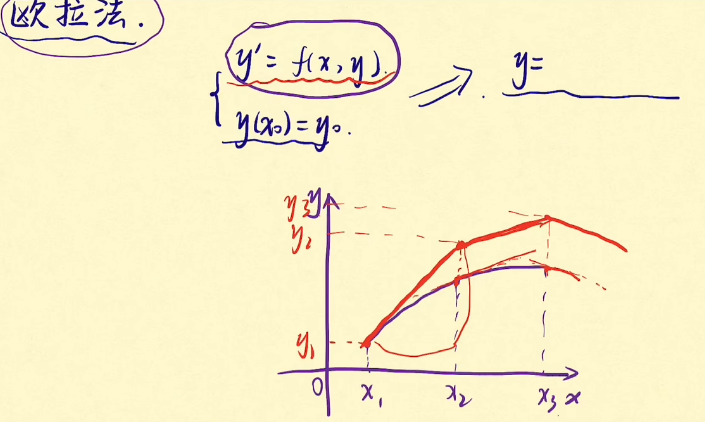 欧拉法.
y' = f(x, y).
y(x₀) = y₀.
⇒ y=
y₃ y
y₂
y₁
0 x₁ x₂ x₃ x